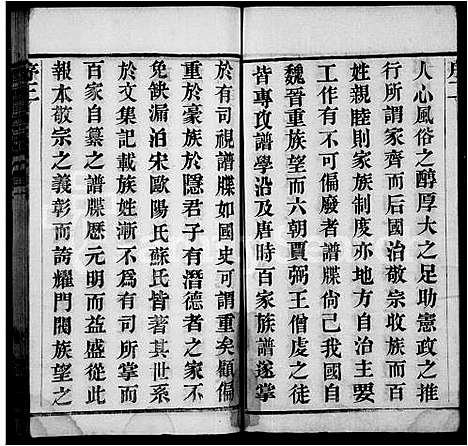 序二
人心風俗之醇厚大之足助憲政之推
行所謂家齊而后國治敬宗收族而百
姓親睦則家族制度亦地方自治主要
工作有不可偏廢者譜牒尙已我國自
魏晉重族望而六朝賈弼王僧虔之徒
皆專攻譜學沿及唐時百家族譜遂掌
於有司視譜牒如國史可謂重矣顧偏
重於豪族於隱君子有潛德者之家不
免缺漏泊宋歐陽氏蘇氏皆著其世系
於文集記載族姓漸不爲有司所掌而
百家自纂之譜牒歷元明而益盛從此
報本敬宗之義彰而誇耀門閥族望之
序三